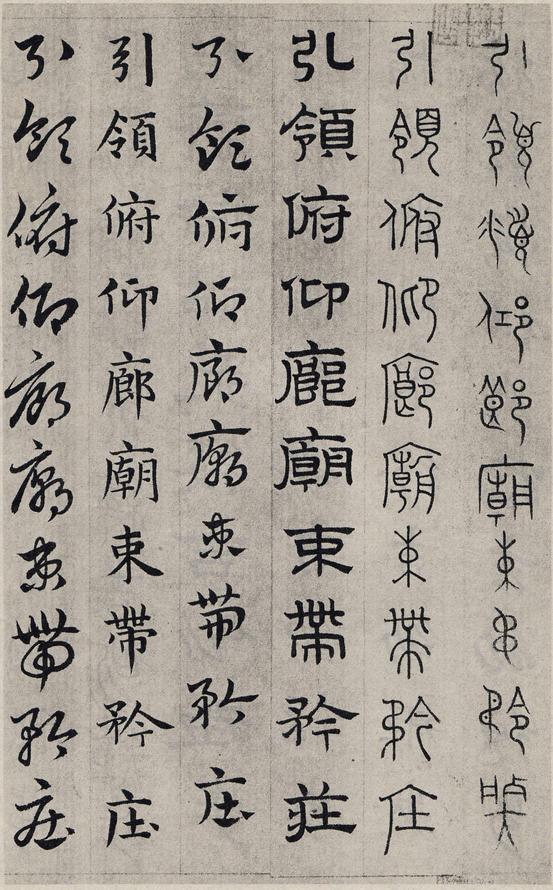 引領俯仰廊廟束帶矜莊
引領俯仰廊廟束帶矜庄
引領俯仰廊廟束帶矜莊
引領俯仰廊廟束帶矜庄
引領俯仰廊廟束帶矜庄
引領俯仰廊廟束帶矜庄